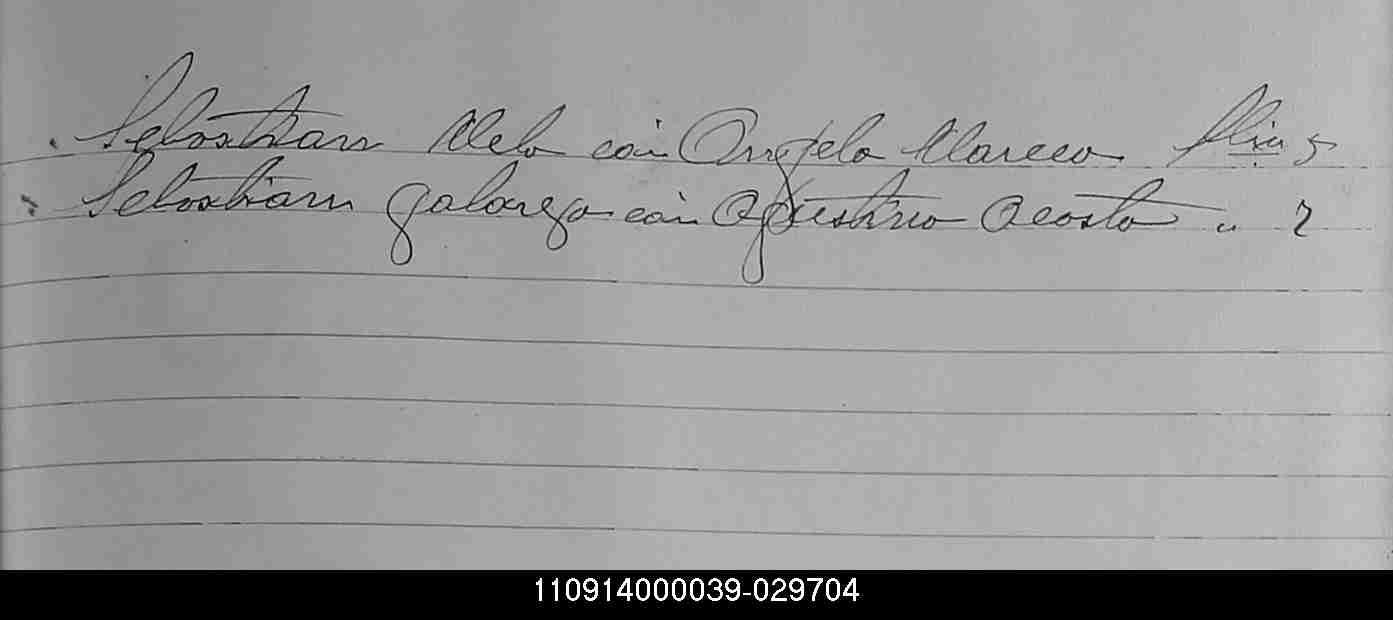 Sebastian Melo con Angela Marcco Mina 5
Sebastian galarga con Agustina Acosta " 2
110914000039-029704